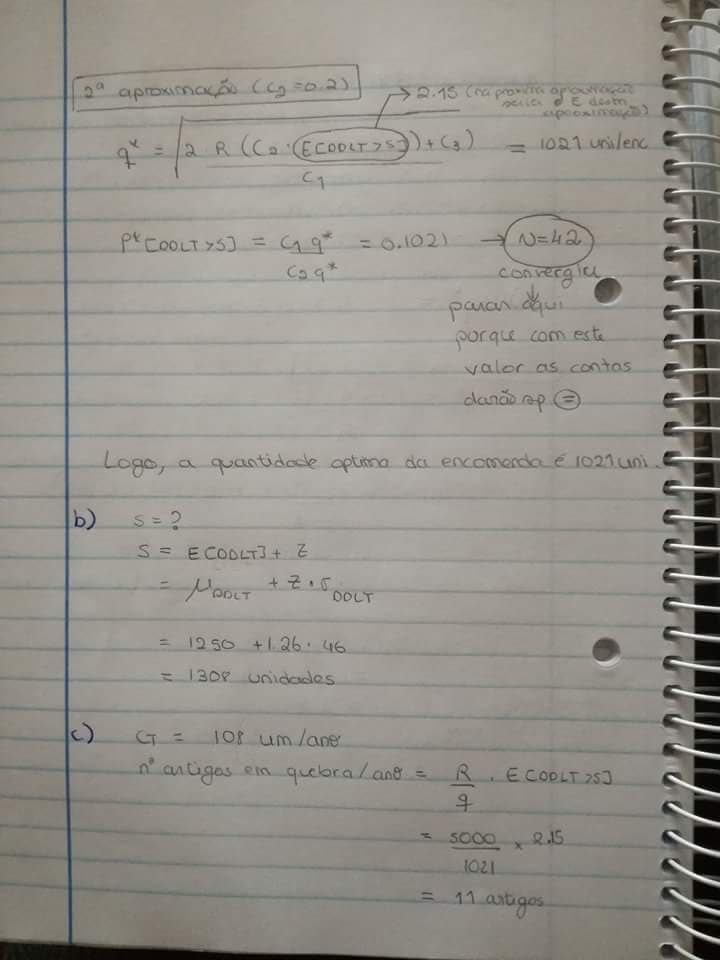 2ª aproximação (C2=0.2)
→ 2.15 (na próxima aproximação
seria o E desta
aproximação)
q* = √(2 R (C2 · (E[DDLT>S]) + C3) / C1) = 1021 uni/enc
P*[DDLT>S] = C1 q* / C2 q* = 0.1021 → N=42
convergiu
↓
parar aqui
porque com este
valor as contas
darão =
Logo, a quantidade optima da encomenda é 1021 uni.
b) S = ?
S = E[DDLT] + Z
= μDDLT + Z · σDDLT
= 1250 + 1.26 · 46
= 1308 unidades
c) G = 108 um/ano
nº artigos em quebra/ano = R/q · E[DDLT>S]
= 5000/1021 × 2.15
= 11 artigos